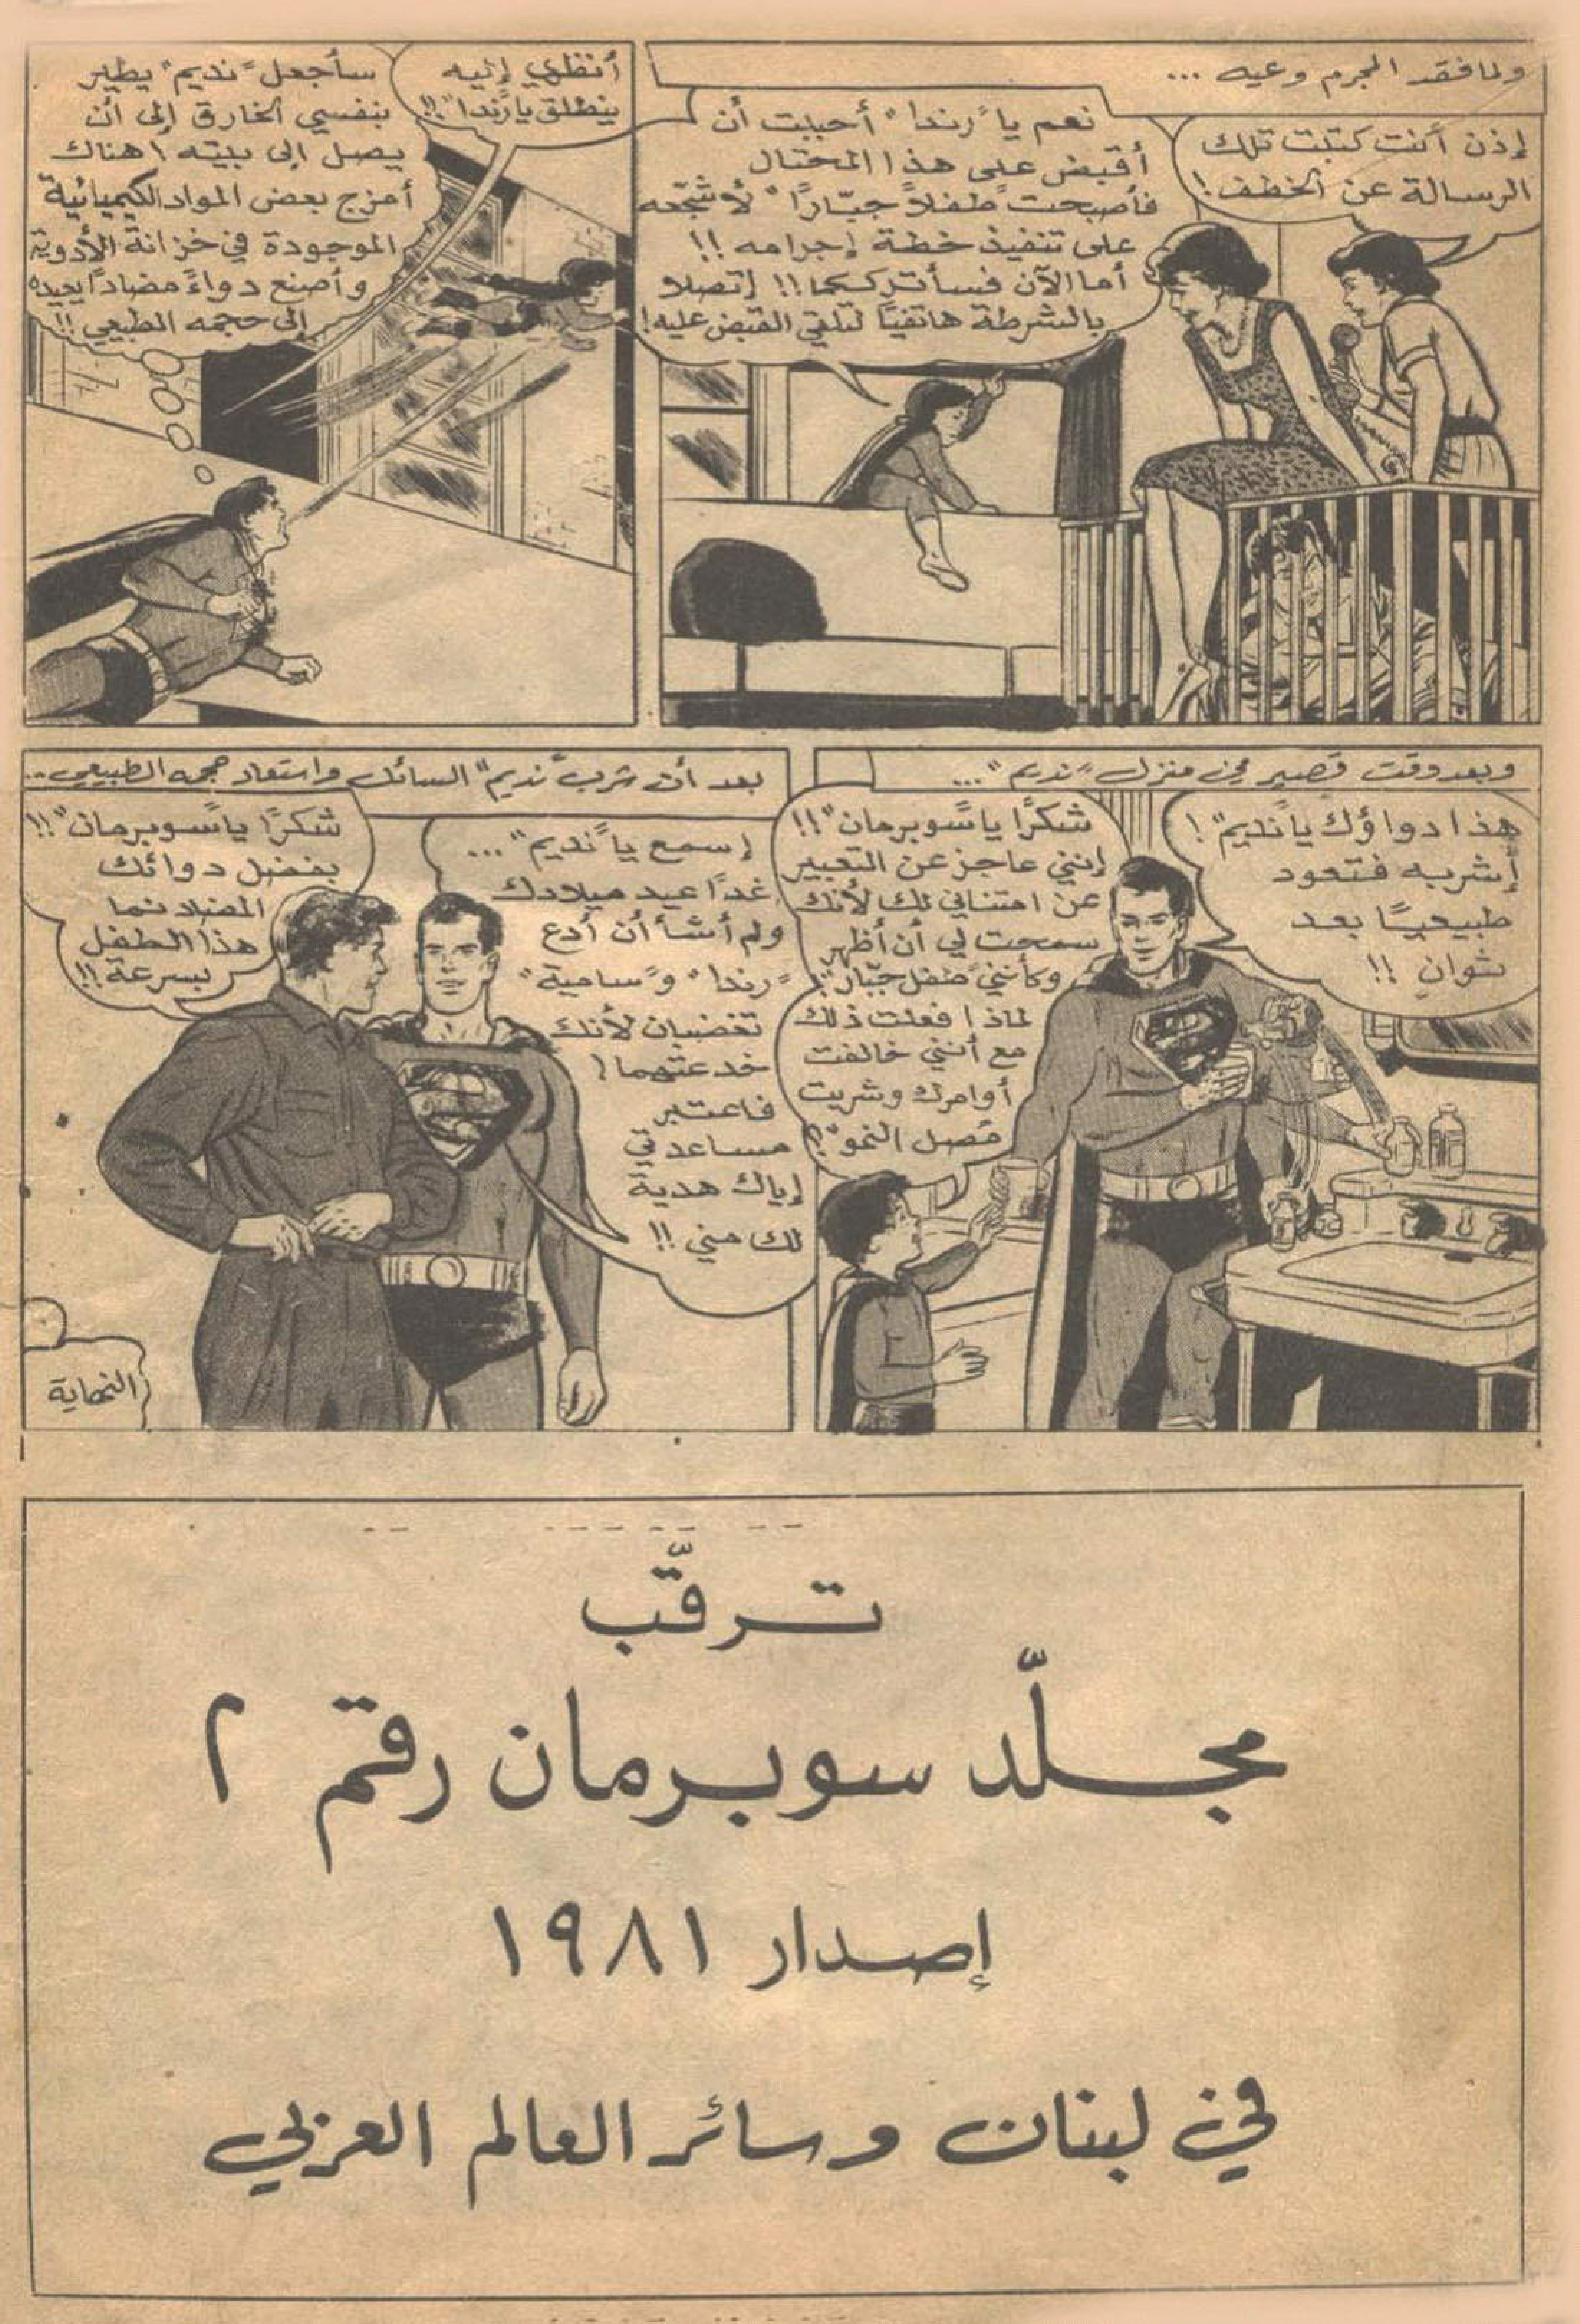 ولما فقد المجرم وعيه ...
إذن أكنت كتبت تلك
الرسالة عن الخطف !
نعم يا "رندا" أحببت أن
أقبض على هذا المحتال
فأصبحت "طفلاً جبّارًا" لأشجّعه
على تنفيذ خطة إجرامه !!
أما الآن فسأترككما !! إتصلا
بالشرطة هاتفيًا لتلقي القبض عليه !
أنظري إليه
ينطلق يا "رندا" !!
سأجعل "نديم" يطير
بنفسي الخارق إلى أن
يصل إلى بيته ! هناك
أمزج بعض المواد الكيميائية
الموجودة في خزانة الأدوية
وأصنع دواءً مضادًا يعيده
إلى حجمه الطبيعي !!
وبعد وقت قصير في منزل "نديم" ...
هذا دواؤك يا "نديم" !
إشربه فتعود
طبيعيًا بعد
ثوانٍ !!
شكرًا يا "سوبرمان" !!
إنني عاجز عن التعبير
عن امتناني لك لأنك
سمحت لي أن أظهر
وكأنني "طفل جبّار" !
لماذا فعلت ذلك
مع أنني خالفت
أوامرك وشربت
"مصل النمو" ؟
بعد أن شرب "نديم" السائل واستعاد حجمه الطبيعي ...
إسمع يا "نديم" ...
غدًا عيد ميلادك
ولم أشأ أن أدع
"رندا" و"سامية"
تغضبان لأنك
خدعتهما !
فاعتبر
مساعدتي
إياك هدية
لك مني !!
شكرًا يا "سوبرمان" !!
بفضل دوائك
المضاد نما
هذا الطفل
بسرعة !!
النهاية
ترقّب
مجلّد سوبرمان رقم ٢
إصدار ١٩٨١
في لبنان وسائر العالم العربي